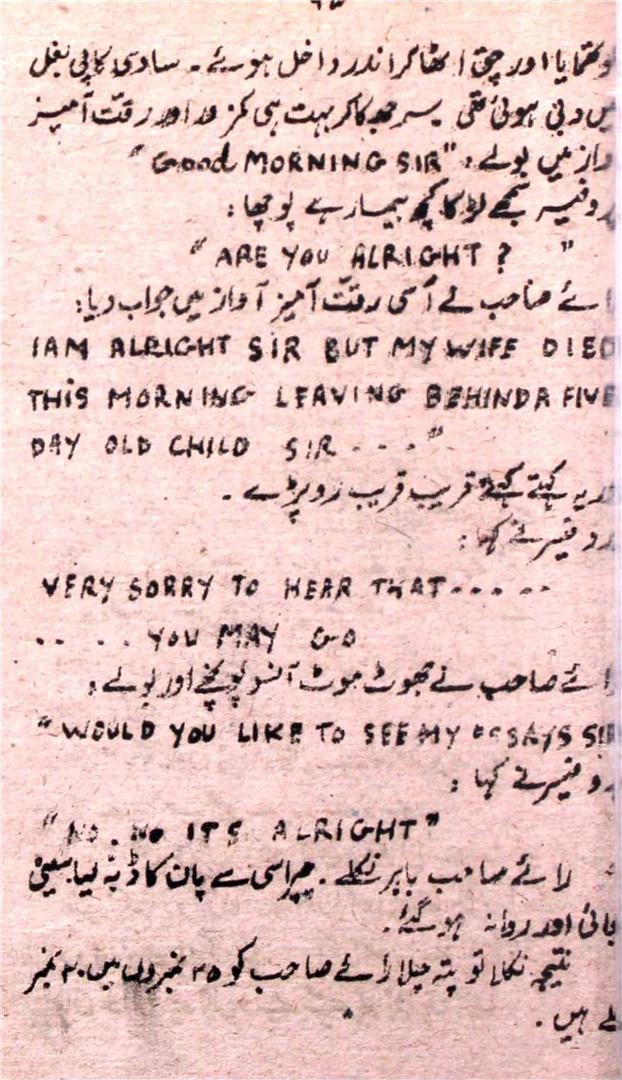 کو تھمایا اور چق اٹھا کر اندر داخل ہوئے۔ سادی کاپی بغل
میں دبی ہوئی تھی سر جھکا کر بہت ہی کمزور اور رقت آمیز
آواز میں بولے: "Good MORNING SIR"
پروفیسر سمجھے لڑکا کچھ بیمار ہے پوچھا:
"ARE YOU ALRIGHT? "
رائے صاحب نے اُسی رقّت آمیز آواز میں جواب دیا:
I AM ALRIGHT SIR BUT MY WIFE DIED
THIS MORNING LEAVING BEHIND A FIVE
DAY OLD CHILD SIR - - - -"
اور یہ کہتے کہتے قریب قریب رو پڑے۔
پروفیسر نے کہا:
VERY SORRY TO HEAR THAT-----
-- . . . YOU MAY GO
رائے صاحب نے جھوٹ موٹ آنسو پونچھے اور بولے:
"WOULD YOU LIKE TO SEE MY ESSAYS SIR
پروفیسر نے کہا:
"NO. No ITS ALRIGHT"
رائے صاحب باہر نکلے۔ چپراسی سے پان کا ڈبہ لیا
اور روانہ ہو گئے۔
نتیجہ نکلا تو پتہ چلا رائے صاحب کو ۲۵ نمبروں میں ۲۰ نمبر
ملے ہیں۔